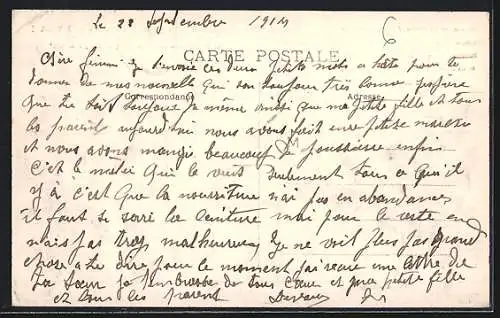 Le 22 Septembre 1914
6
CARTE POSTALE
Chère je t'envoie ces deux petits mots a te pour te
donner de mes nouvelle qui son toujours très bonne j'espère
Correspondance Adresse
que toi soit toujours de même ainsi que ma petite fille et tous
les parents aujourd'hui nous avons fait une petite marche
et nous avons mangé beaucoup de poussière enfin
C'est le métier qui le veut seulement tous ce qu'il
y a c'est que la nourriture n'ai pas en abondances
il faut se serré la ceinture mai pour le reste on
n'ais pas trop malheureux Je ne voit plus pas grand
chose a te dire pour le moment j'ai recue une lettre de
ta Soeur je t'embrasse de tous Coeur et ma petite fille
et tous les parent